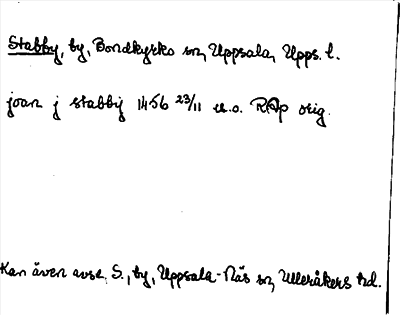 Stabby, by, Bondkyrko sn, Uppsala, Upps. l.
joan j stabbij 1456 23/11 u.o. RAp orig.
Kan även avse S., by, Uppsala-Näs sn, Ulleråkers hd.